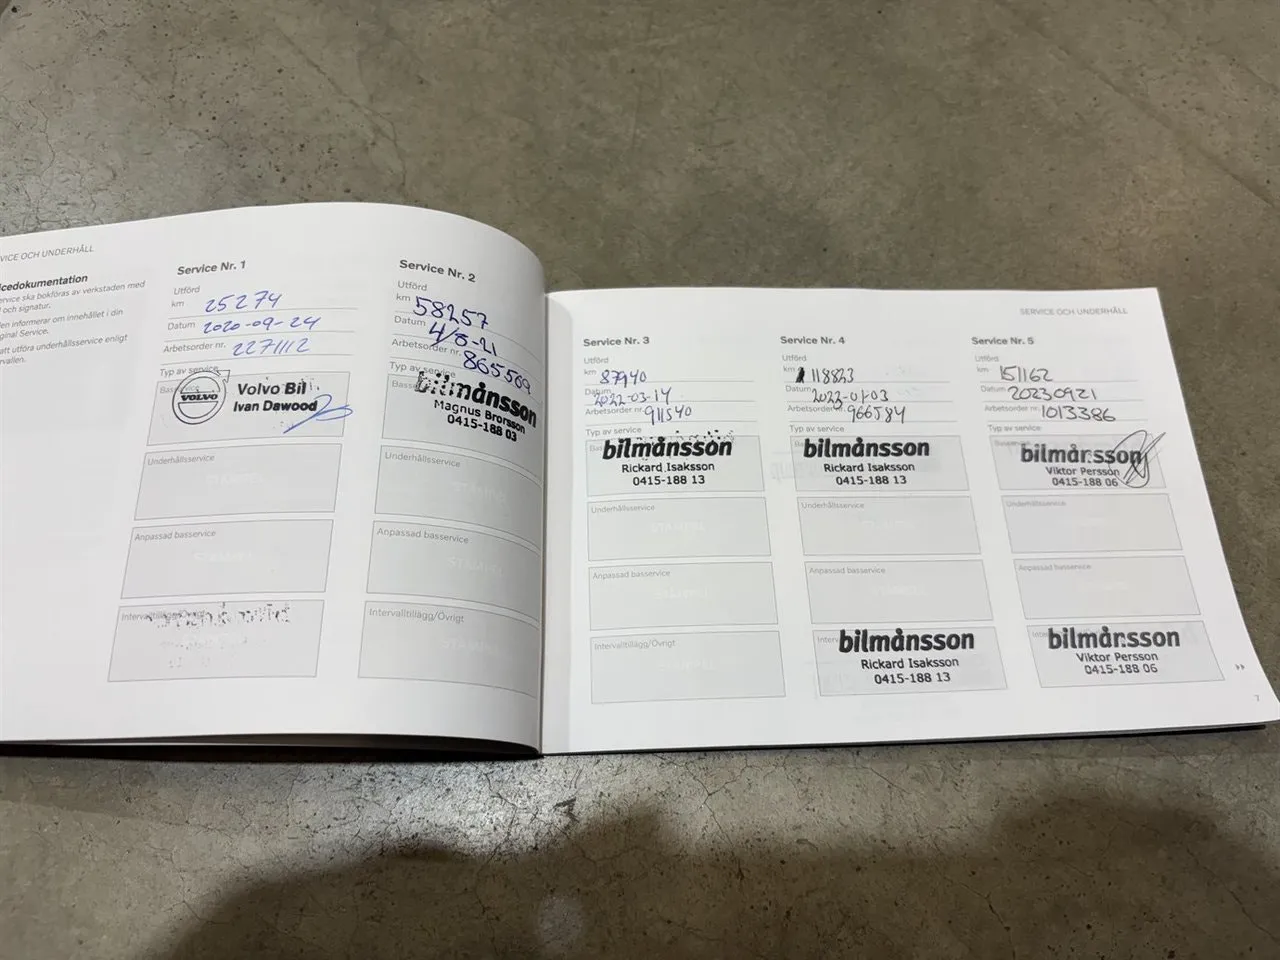 VICE OCH UNDERHÅLL
icedokumentation
ervice ska bokföras av verkstaden med
l och signatur.
en informerar om innehållet i din
ginal Service.
att utföra underhållsservice enligt
rvallen.
Service Nr. 1
Utförd
km 25274
Datum 2020-09-24
Arbetsorder nr. 2271112
Typ av service
VOLVO
Volvo Bil
Ivan Dawood
Underhållsservice
STÄMPEL
Anpassad basservice
Intervalltillägg/Övrigt
Service Nr. 2
Utförd
km 58257
Datum 4/8-21
Arbetsorder nr. 865569
Typ av service
bilmånsson
Magnus Brorsson
0415-188 03
Underhållsservice
Anpassad basservice
STÄMPEL
Intervalltillägg/Övrigt
SERVICE OCH UNDERHÅLL
Service Nr. 3
Utförd
km 87940
Datum 2022-03-14
Arbetsorder nr. 911540
Typ av service
bilmånsson
Rickard Isaksson
0415-188 13
Underhållsservice
Anpassad basservice
Intervalltillägg/Övrigt
Service Nr. 4
Utförd
km 118823
Datum 2022-01-03
Arbetsorder nr. 966584
Typ av service
bilmånsson
Rickard Isaksson
0415-188 13
Underhållsservice
Anpassad basservice
bilmånsson
Rickard Isaksson
0415-188 13
Service Nr. 5
Utförd
km 151162
Datum 20230921
Arbetsorder nr. 1013386
Typ av service
bilmånsson
Viktor Persson
0415-188 06
Underhållsservice
Anpassad basservice
bilmånsson
Viktor Persson
0415-188 06
7